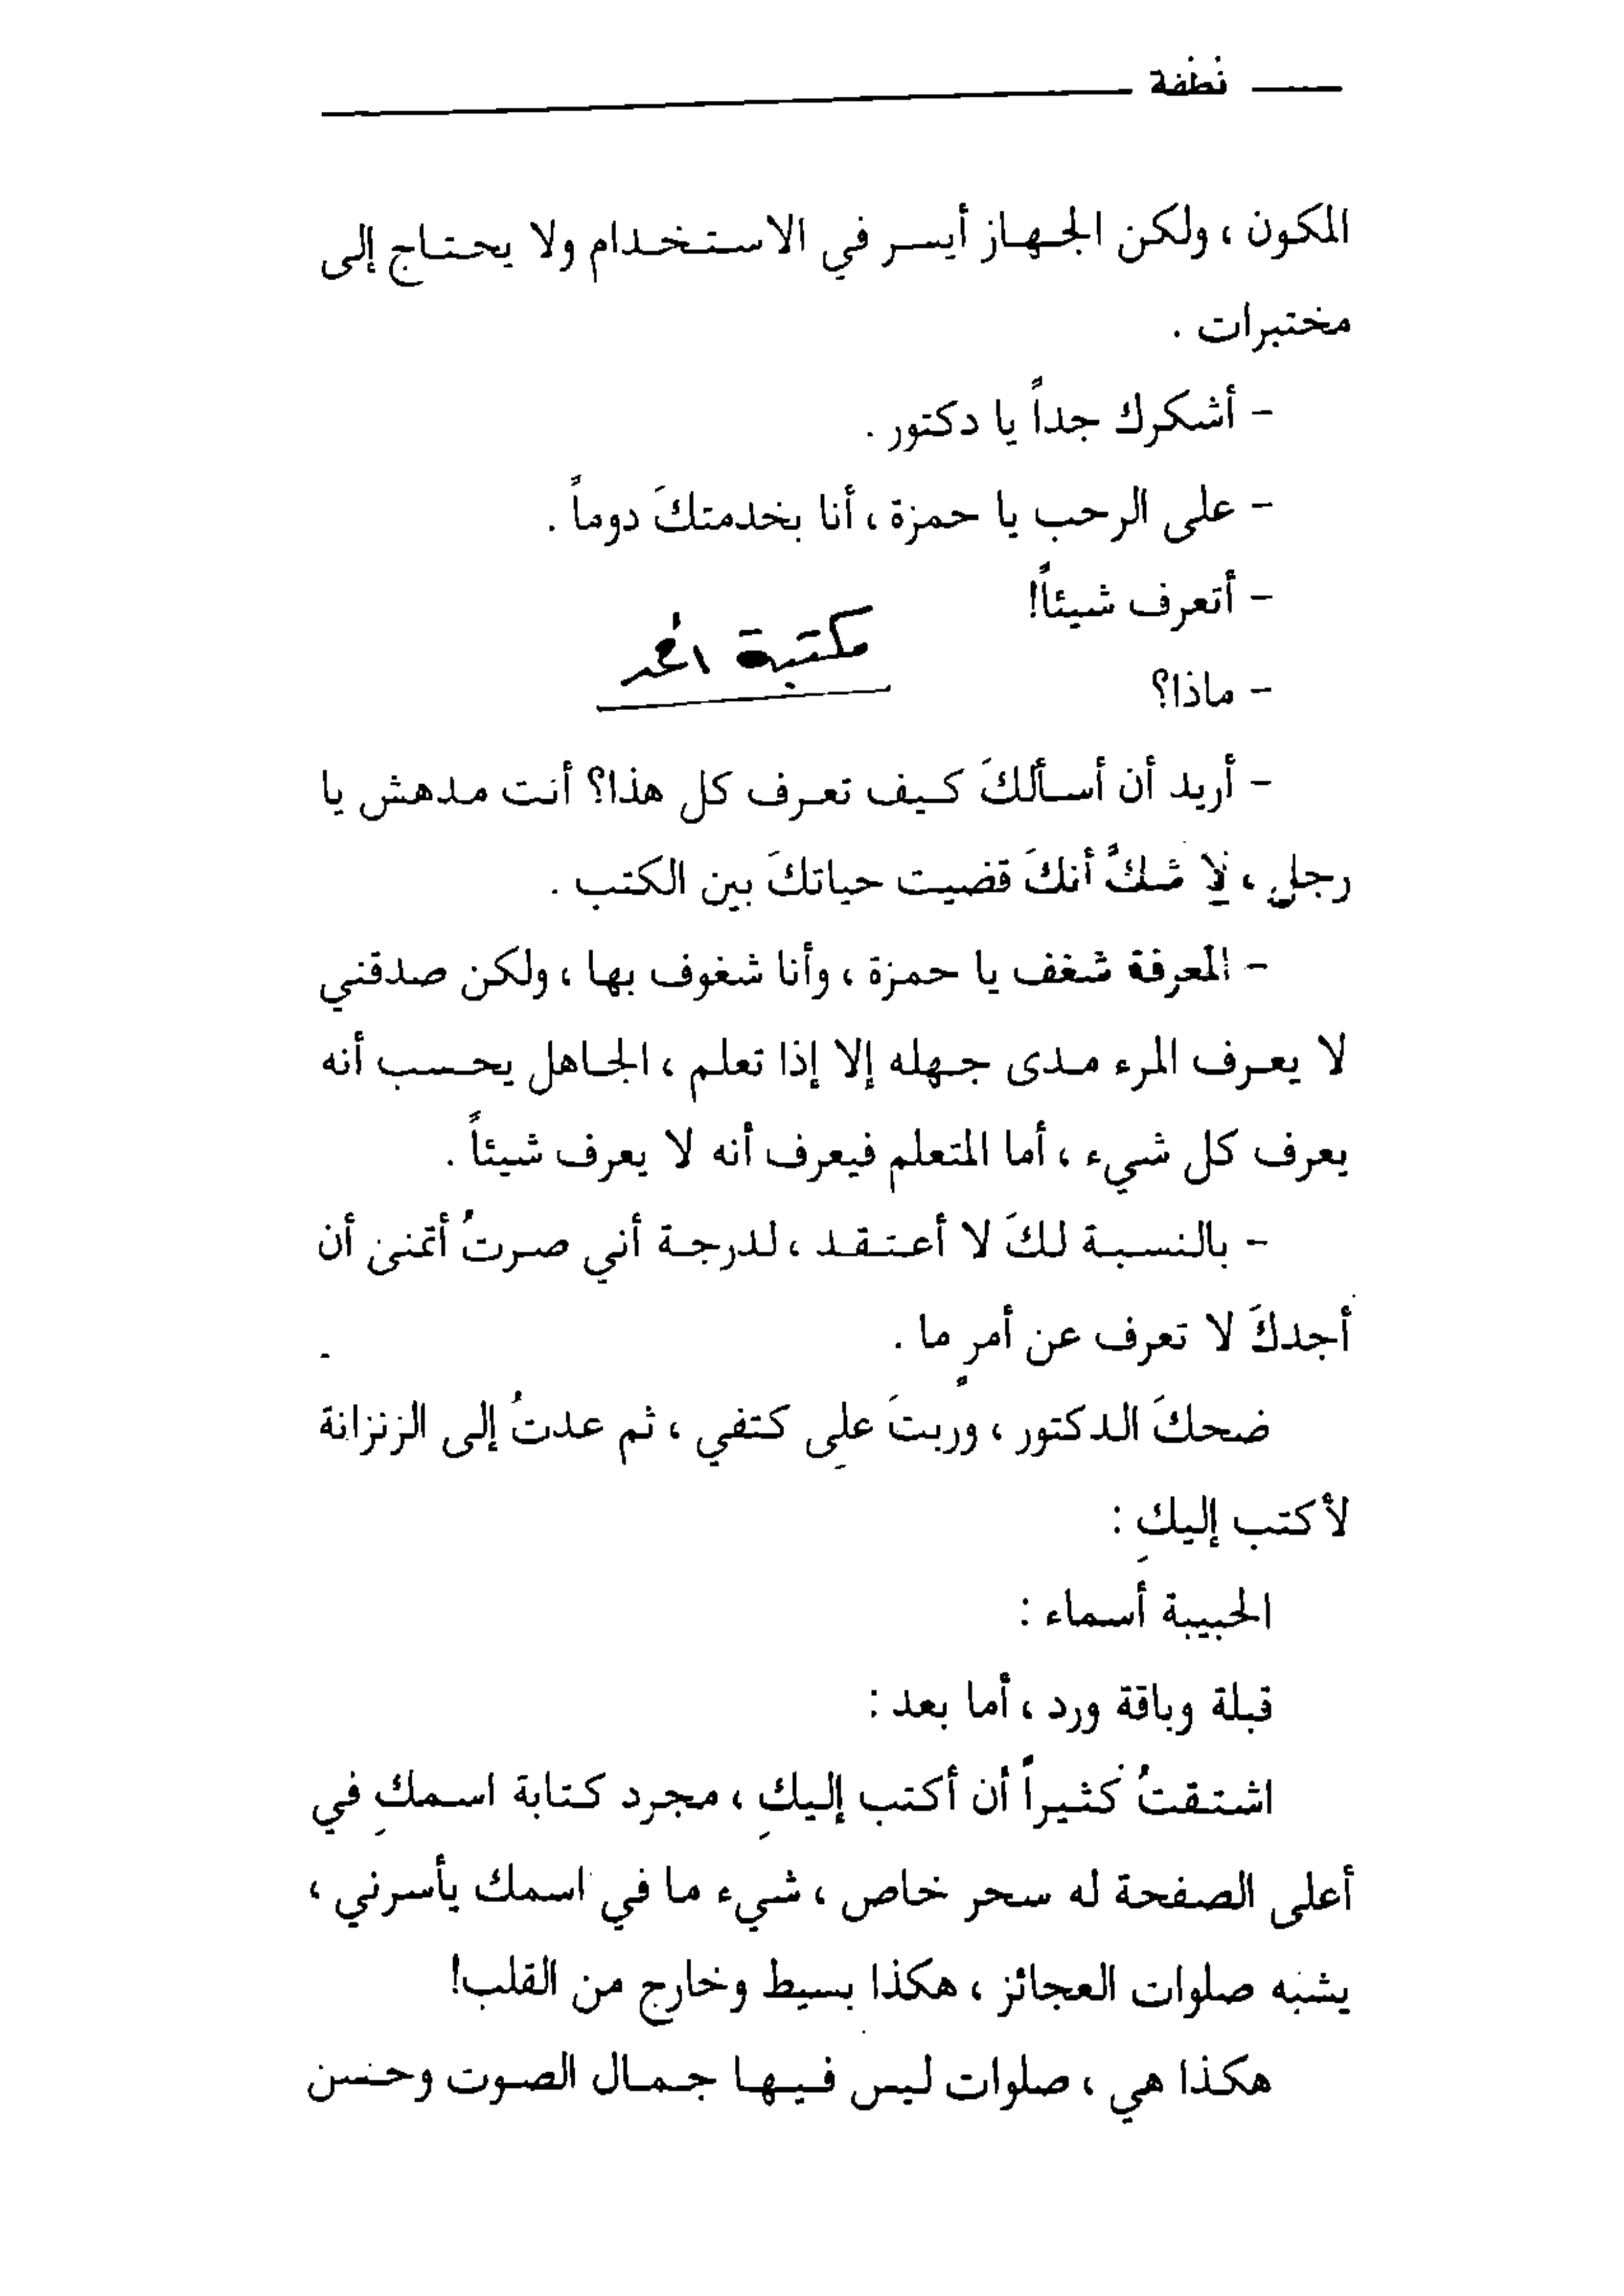 نطفة
المكون ، ولكن الجهاز أيسر في الاستخدام ولا يحتاج إلى
مختبرات .
- أشكرك جداً يا دكتور .
- على الرحب يا حمزة ، أنا بخدمتكَ دوماً .
- أتعرف شيئاً!
مكتبة
- ماذا؟
- أريد أن أسألكَ كيف تعرف كل هذا؟ أنت مدهش يا
رجل ، لا شكَّ أنكَ قضيت حياتكَ بين الكتب .
- المعرفة شغف يا حمزة ، وأنا شغوف بها ، ولكن صدقني
لا يعرف المرء مدى جهله إلا إذا تعلم ، الجاهل يحسب أنه
يعرف كل شيء ، أما المتعلم فيعرف أنه لا يعرف شيئاً .
- بالنسبة لكَ لا أعتقد ، لدرجة أني صرتُ أتمنى أن
أجدكَ لا تعرف عن أمرٍ ما .
ضحكَ الدكتور ، وربتَ على كتفي ، ثم عدتُ إلى الزنزانة
لأكتب إليكِ :
الحبيبة أسماء :
قبلة وباقة ورد ، أما بعد :
اشتقتُ كثيراً أن أكتب إليكِ ، مجرد كتابة اسمكِ في
أعلى الصفحة له سحر خاص ، شيء ما في اسمك يأسرني ،
يشبه صلوات العجائز ، هكذا بسيط وخارج من القلب!
هكذا هي ، صلوات ليس فيها جمال الصوت وحسن